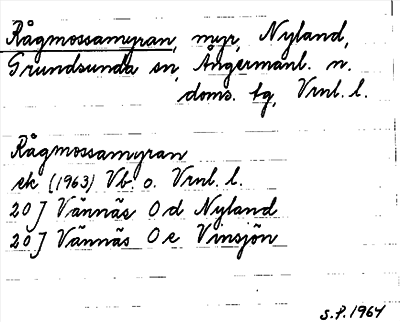 Rågmossamyran, myr, Nyland,
Grundsunda sn, Ångermanl. n.
doms. tg, Vrnl. l.
Rågmossamyran
ek (1963) Vb. o. Vrnl. l.
20 J Vännäs 0 d Nyland
20 J Vännäs 0 e Vinsjön
S.P. 1964